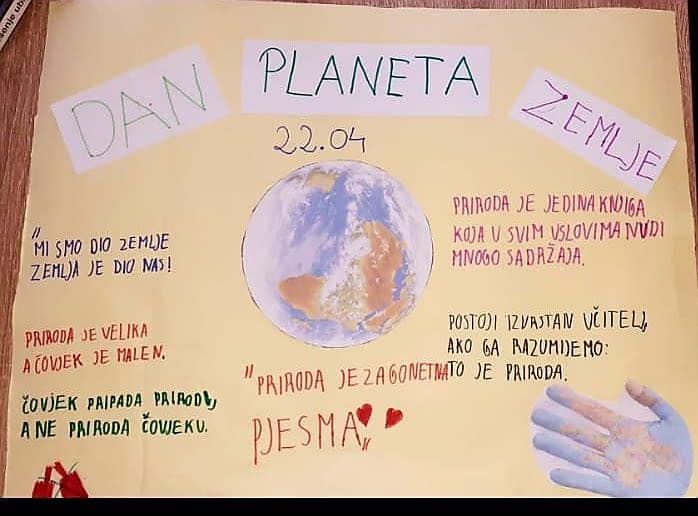 DAN PLANETA ZEMLJE
22.04
"MI SMO DIO ZEMLJE
ZEMLJA JE DIO NAS!
PRIRODA JE VELIKA
A ČOVJEK JE MALEN.
ČOVJEK PRIPADA PRIRODI,
A NE PRIRODA ČOVJEKU.
"PRIRODA JE ZAGONETNA
PJESMA"
PRIRODA JE JEDINA KNJIGA
KOJA U SVIM USLOVIMA NUDI
MNOGO SADRŽAJA.
POSTOJI IZVRSTAN UČITELJ,
AKO GA RAZUMIJEMO:
TO JE PRIRODA.